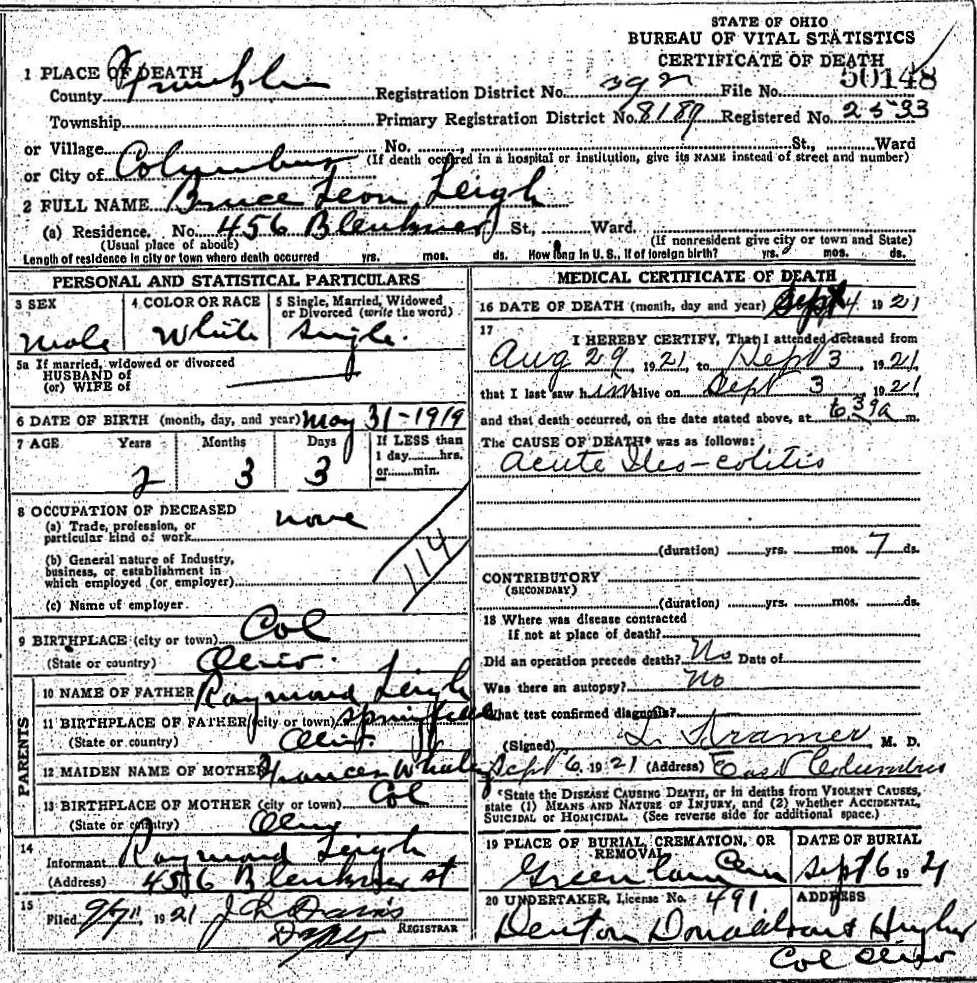 STATE OF OHIO
BUREAU OF VITAL STATISTICS
CERTIFICATE OF DEATH
1 PLACE OF DEATH
County Franklin Registration District No. 392 File No. 50148
Township Primary Registration District No. 8187 Registered No. 2533
or Village No. , St., Ward
(If death occurred in a hospital or institution, give its NAME instead of street and number)
or City of Columbus
2 FULL NAME Bruce Leon Leigh
(a) Residence. No. 456 Blenkner St., Ward.
(Usual place of abode) (If nonresident give city or town and State)
Length of residence in city or town where death occurred yrs. mos. ds. How long in U. S., if of foreign birth? yrs. mos. ds.
PERSONAL AND STATISTICAL PARTICULARS
3 SEX 4 COLOR OR RACE 5 Single, Married, Widowed
or Divorced (write the word)
Male White Single.
5a If married, widowed or divorced
HUSBAND of
(or) WIFE of
6 DATE OF BIRTH (month, day, and year) May 31-1919
7 AGE Years Months Days If LESS than
1 day hrs.
or min.
2 3 3
8 OCCUPATION OF DECEASED none
(a) Trade, profession, or
particular kind of work
(b) General nature of Industry,
business, or establishment in
which employed (or employer)
(c) Name of employer
114
9 BIRTHPLACE (city or town) Col
(State or country) Ohio.
PARENTS
10 NAME OF FATHER Raymond Leigh
11 BIRTHPLACE OF FATHER (city or town) Springfield
(State or country) Ohio.
12 MAIDEN NAME OF MOTHER Frances Whaley
13 BIRTHPLACE OF MOTHER (city or town) Col
(State or country) Ohio
14
Informant Raymond Leigh
(Address) 456 Blenkner st
15
Filed 9/7, 1921 J L Davis
Dpty REGISTRAR
MEDICAL CERTIFICATE OF DEATH
16 DATE OF DEATH (month, day and year) Sept 4 1921
17
I HEREBY CERTIFY, That I attended deceased from
Aug 29, 1921, to Sept 3, 1921
that I last saw him alive on Sept 3 1921
and that death occurred, on the date stated above, at m.
The CAUSE OF DEATH* was as follows:
Acute Ileo-colitis
(duration) yrs. mos. 7 ds.
CONTRIBUTORY
(SECONDARY)
(duration) yrs. mos. ds.
18 Where was disease contracted
if not at place of death?
Did an operation precede death? No Date of
Was there an autopsy? No
What test confirmed diagnosis?
(Signed) L. Kramer, M. D.
Sept 6, 1921 (Address) East Columbus
*State the DISEASE CAUSING DEATH, or in deaths from VIOLENT CAUSES,
state (1) MEANS AND NATURE OF INJURY, and (2) whether ACCIDENTAL,
SUICIDAL or HOMICIDAL. (See reverse side for additional space.)
19 PLACE OF BURIAL, CREMATION, OR
REMOVAL
DATE OF BURIAL
Greenlawn Cem Sept 6 1921
20 UNDERTAKER, License No. 491 ADDRESS
Denton Donaldson & Hughes
Col Ohio